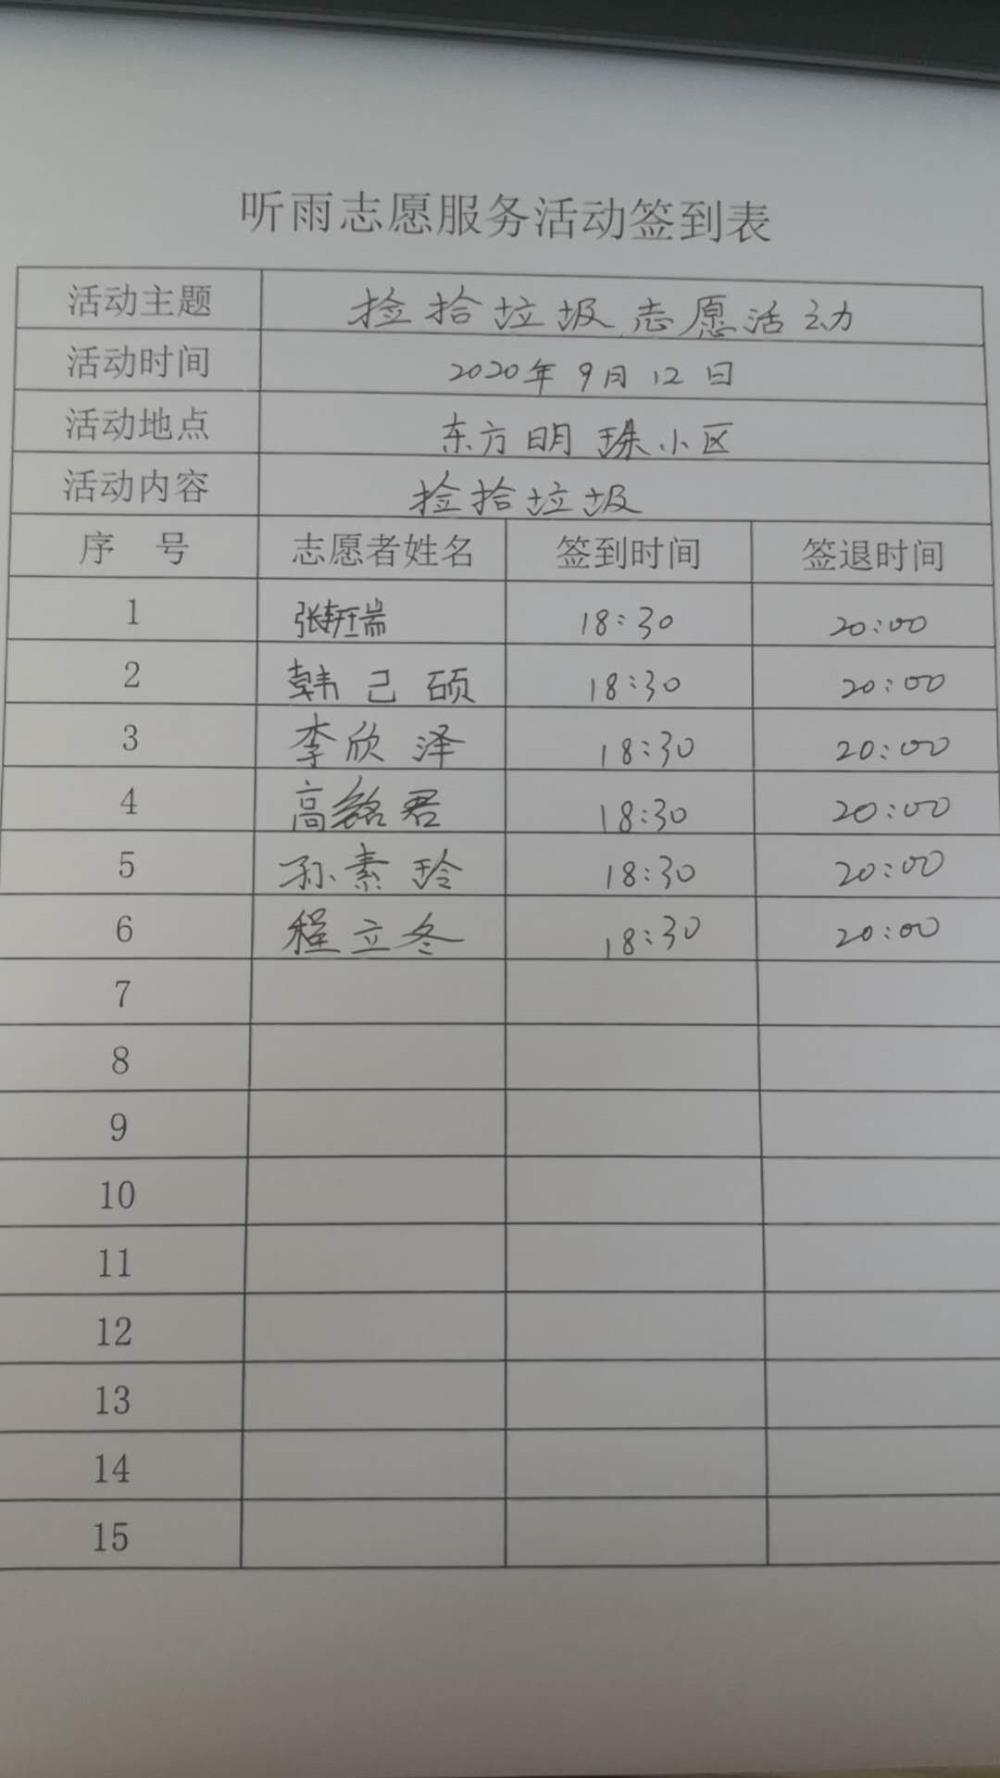 听雨志愿服务活动签到表
活动主题 捡拾垃圾志愿活动
活动时间 2020年9月12日
活动地点 东方明珠小区
活动内容 捡拾垃圾
序 号 志愿者姓名 签到时间 签退时间
1 张 瑞 18:30 20:00
2 韩己硕 18:30 20:00
3 李欣泽 18:30 20:00
4 高 君 18:30 20:00
5 孙素玲 18:30 20:00
6 程立冬 18:30 20:00
7
8
9
10
11
12
13
14
15